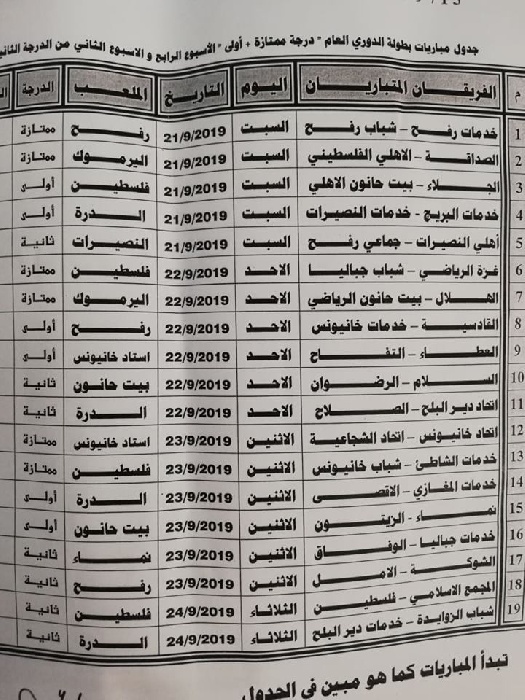 جدول مباريات بطولة الدوري العام "درجة ممتازة + أولى" الأسبوع الرابع و الاسبوع الثاني من الدرجة
م الفريقان المتباريان اليوم التاريخ الملعب الدرجة
1 خدمات رفح - شباب رفح السبت 21/9/2019 رفح ممتازة
2 الصداقة - الاهلي الفلسطيني السبت 21/9/2019 اليرموك ممتازة
3 الجلاء - بيت حانون الاهلي السبت 21/9/2019 فلسطين أولى
4 خدمات البريج - خدمات النصيرات السبت 21/9/2019 الدرة أولى
5 أهلي النصيرات - جماعي رفح السبت 21/9/2019 النصيرات ثانية
6 غزة الرياضي - شباب جباليا الاحد 22/9/2019 فلسطين ممتازة
7 الهلال - بيت حانون الرياضي الاحد 22/9/2019 اليرموك ممتازة
8 القادسية - خدمات خانيونس الاحد 22/9/2019 رفح أولى
9 العطاء - النفاح الاحد 22/9/2019 استاد خانيونس أولى
10 السلام - الرضوان الاحد 22/9/2019 بيت حانون ثانية
11 اتحاد دير البلح - الصلاح الاحد 22/9/2019 الدرة ثانية
12 اتحاد خانيونس - اتحاد الشجاعية الاثنين 23/9/2019 استاد خانيونس ممتازة
13 خدمات الشاطئ - شباب خانيونس الاثنين 23/9/2019 فلسطين ممتازة
14 خدمات المغازي - الاقصى الاثنين 23/9/2019 الدرة أولى
15 نماء - الزيتون الاثنين 23/9/2019 بيت حانون أولى
16 خدمات جباليا - الوفاق الاثنين 23/9/2019 نماء ثانية
17 الشوكة - الامل الاثنين 23/9/2019 رفح ثانية
18 المجمع الاسلامي - فلسطين الثلاثاء 24/9/2019 فلسطين ثانية
19 شباب الزوايدة - خدمات دير البلح الثلاثاء 24/9/2019 الدرة ثانية
تبدأ المباريات كما هو مبين في الجدول